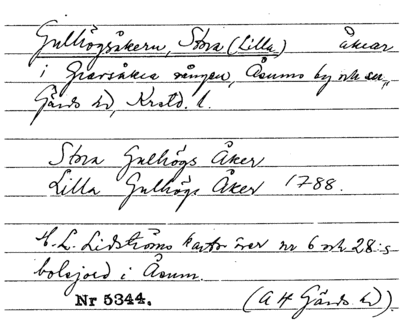 Gullhögsåkern, Stora (Lilla) åkrar
i Grarsåkra vången, Åsums by och sn,
Gärds hd, Krstd. l.
Stora Gullhögs Åker
Lilla Gullhögs Åker 1788.
H. L. Lidströms karta över nr 6 och 28:s
bolsjord i Åsum.
Nr 5344. (A 4 Gärds hd).